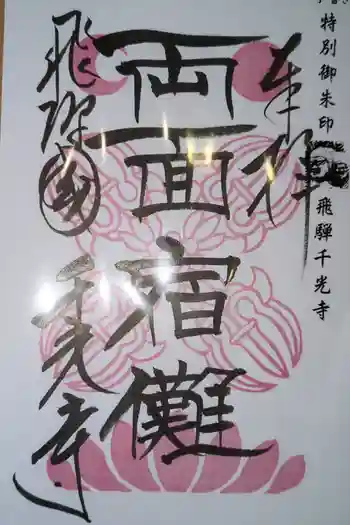 特別御朱印 飛騨千光寺
奉拝
両面宿儺
飛騨國 千光寺